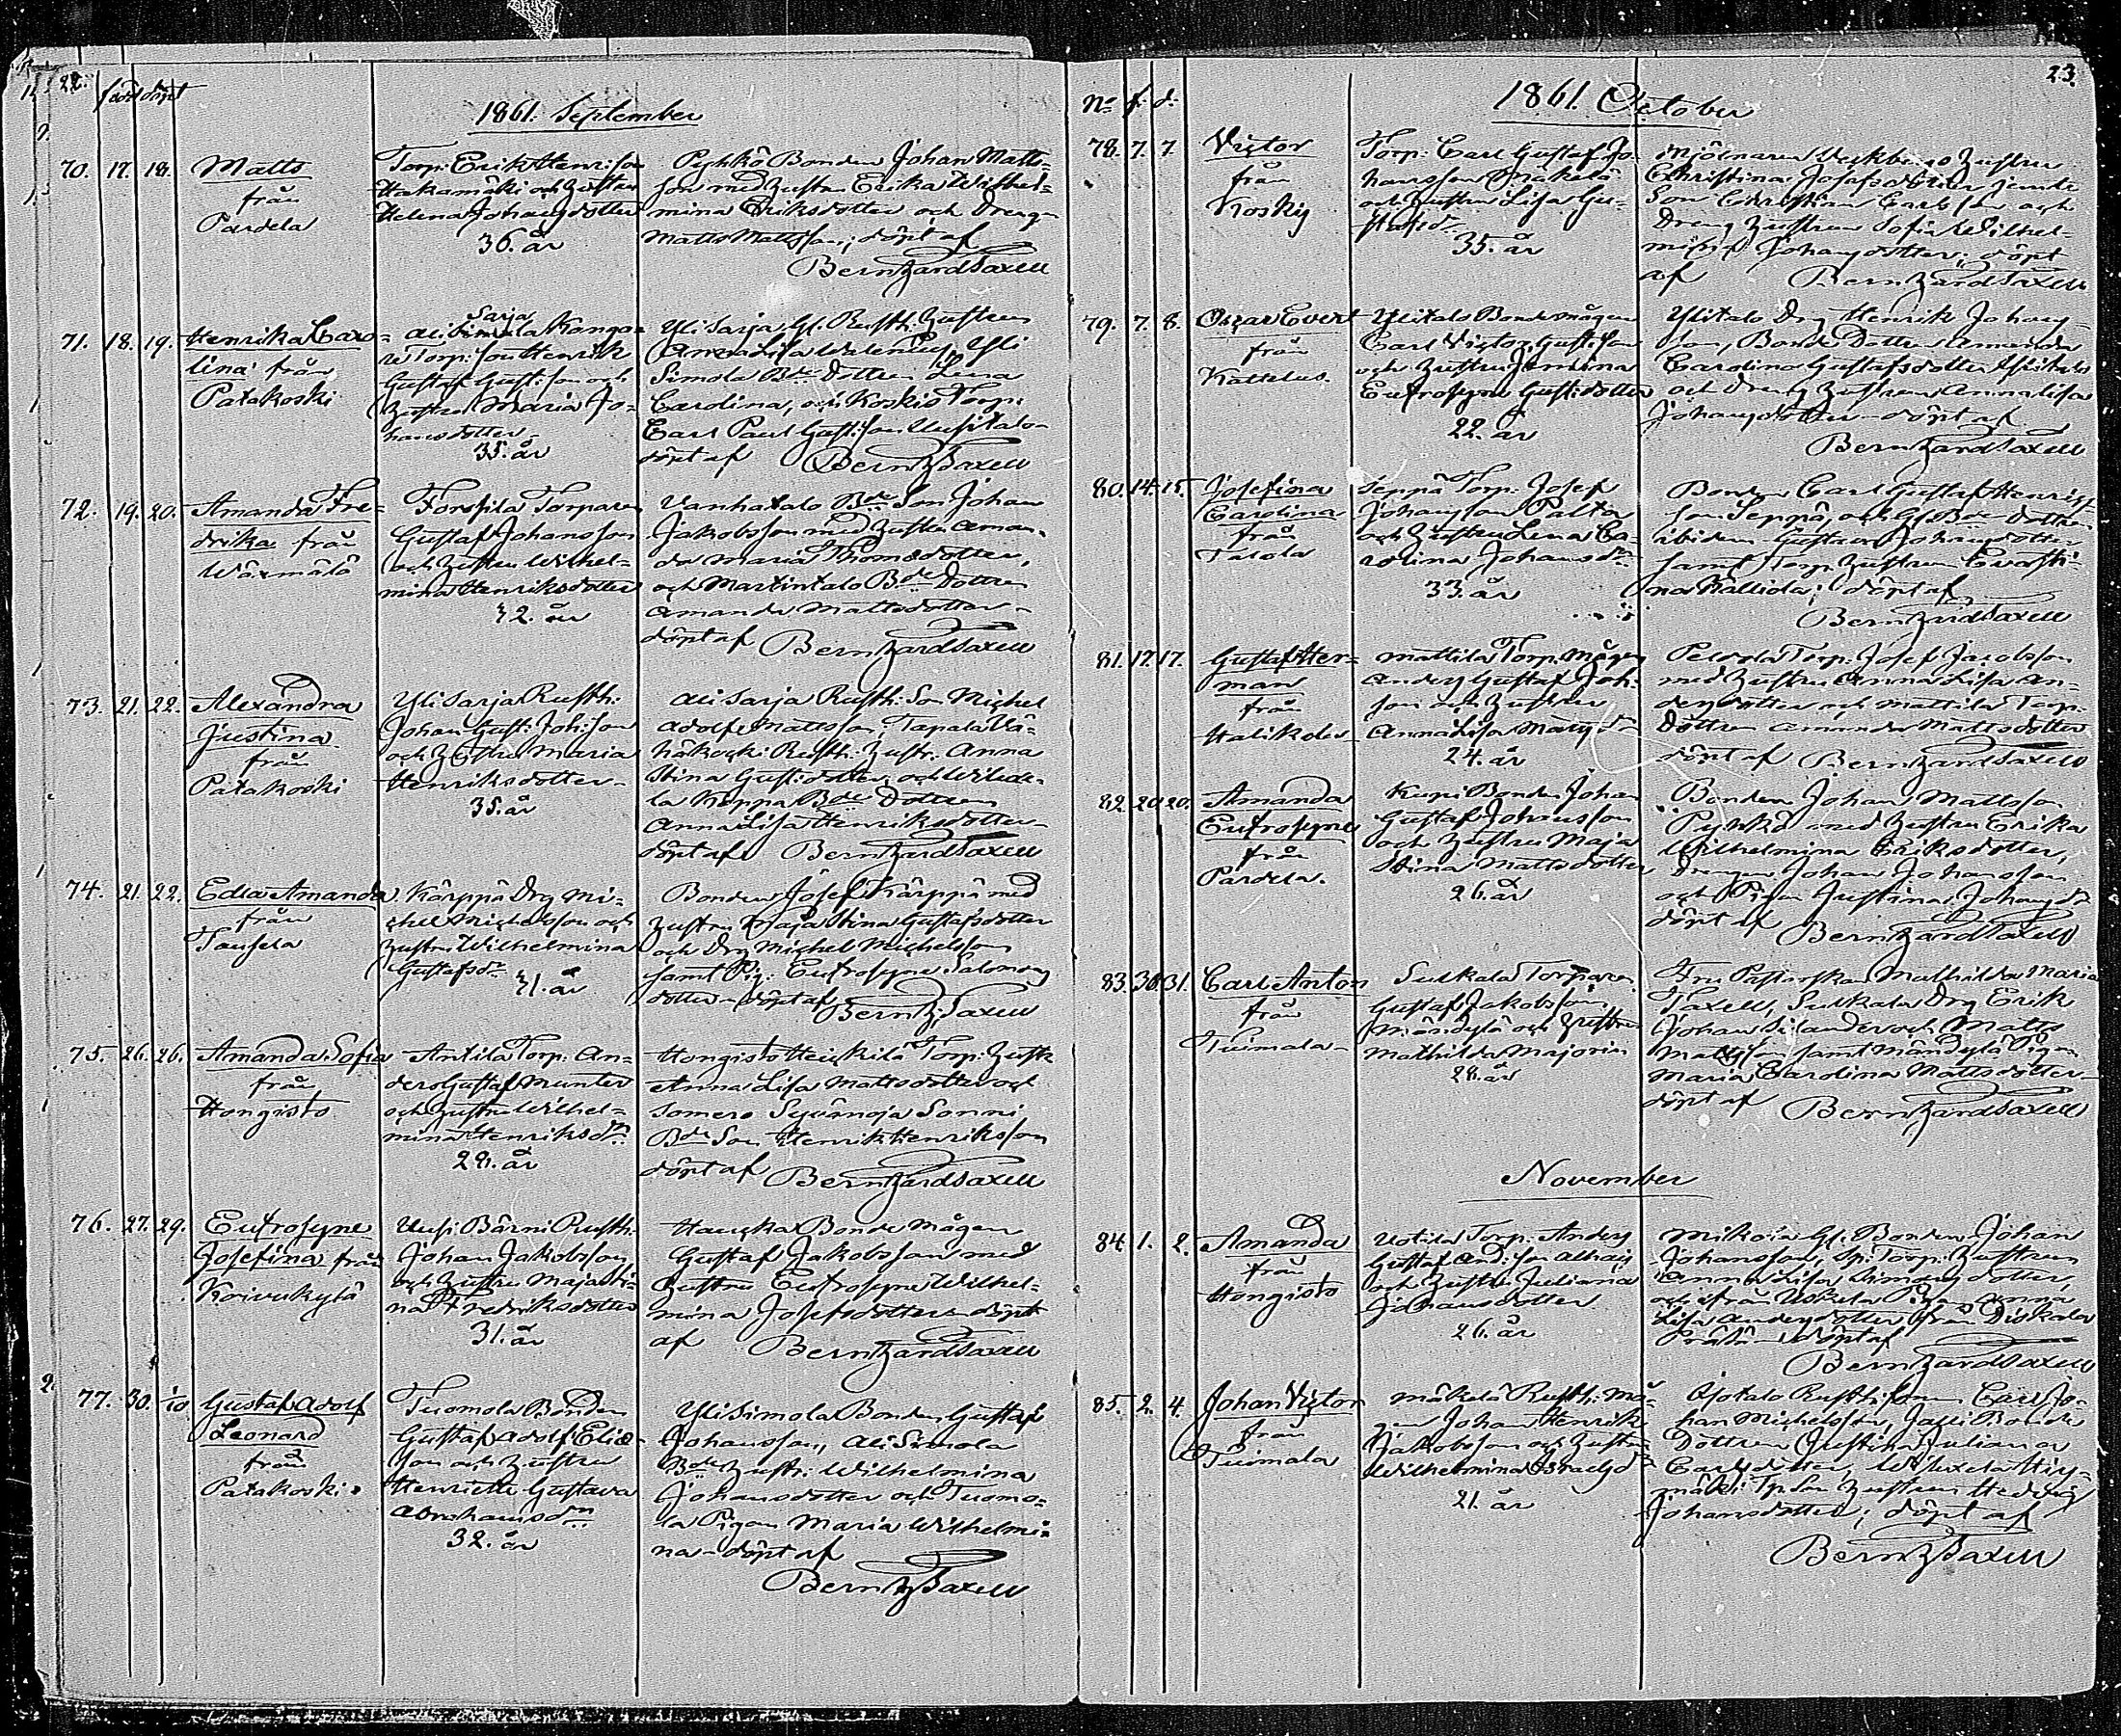 22.
född döpt
1861. September
70. 17. 18. Matts
från
Pardela
Torp: Erik Henrisson
Hakamäki och Hustru
Helena Johansdotter
36. år
Pyhkö Bonden Johan Matts=
son med Hustru Erika Wilhel=
mina Eriksdotter och Dreng
Matts Mattsson; döpt af
Berntzard Saxell
71. 18. 19. Henrika Caro=
lina från
Patakoski
Sarja
Ali Simola Kanga=
re Torp: son Henrik
Gustaf Gust: son och
Hustru Maria Jo=
hansdotter
35. år
Yli Sarja Gl. Rusth: Hustrun
Anna Lisa Yli
Simola Bde Dottren Lena
Carolina, och Koskis Torp:
Carl Paul Gust: son Uusitalo
döpt af Berntz Saxell
72. 19. 20. Amanda Fre=
drika från
Wärmälä
Forssila Torparen
Gustaf Johansson
och Hustru Wilhel=
mina Henriksdotter
42. år
Vanhatalo Bde Son Johan
Jakobsson med Hustru Aman=
da Maria Thomsdotter,
och Martintalo Bde Dottren
Amanda Mattsdotter
döpt af Berntzard Saxell
73. 21. 22. Alexandra
Justina
från
Patakoski
Yli Sarja Rusth:
Johan Gust: Joh: son
och Hustru Maria
Henriksdotter
35. år
Ali Sarja Rusth: Son Michel
Adolf Mattsson, Tapala Vä=
häkoski Rusth: Hustr. Anna
Stina Gust: dotter och
la Käppä Bde Dottren
Anna Lisa Henriksdotter
döpt af Berntzard Saxell
74. 21. 22. Edla Amanda
från
Taussa
Kärppä Drg Mi=
chel Michelsson och
Hustru Wilhelmina
Gustafsdr
41. år
Bonden Josef Kärppä med
Hustru Maja Stina Gustafsdotter
och Drg Michel Michelsson
samt Pig: Eufrosyne Salomons
dotter döpt af Berntz: Saxell
75. 26. 26. Amanda Sofia
från
Hongisto
Antila Torp: An=
ders Gustaf Munter
och Hustru Wilhel=
mina Henriksdr
28. år
Hongisto Heickilä Torp: Hustr
Anna Lisa Mattsdotter och
Somero Syvänoja Sonni
Bde Son Henrik Henriksson
döpt af Berntzard Saxell
76. 27. 29. Eufrosyne
Josefina från
Koivukylä
Uusi Bärni Rusth:
Johan Jakobsson
och Hustru Maja Sti=
na Fredriksdotter
31. år
Hauska Bonde mågen
Gustaf Jakobsson med
Hustru Eufrosyne Wilhel=
mina Josefsdotter döpt
af Berntzard Saxell
77. 30. 1/10 Gustaf Adolf
Leonard
från
Patakoski
Tuomola Bonden
Gustaf Adolf Elias=
son och Hustru
Henriette Gustava
Abrahamsdr
32. år
Yli Simola Bonden Gustaf
Johansson, Ali Simola
Bde Hustr: Wilhelmina
Johansdotter och Tuomo=
la Pigan Maria Wilhelmi=
na döpt af
Berntz Saxell
23.
No f. d.
1861. October
78. 7. 7. Victor
från
Koskis
Torp: Carl Gustaf Jo=
hansson Mäkelä
och Hustru Lisa Gu=
stafsdr
35. år
Mjölnaren Hustru
Christina Josefsdotter jemte
Son Christian Carlsson och
Dreng Hustrun Sofia Wilhel=
mina Johansdotter; döpt
af Berntzard Saxell
79. 7. 8. Oscar Evert
från
Kattelus
Ylitalo Bondemågen
Carl Victor Gust: son
och Hustru Jemina
Eufrosyne Gust: dotter
22. år
Ylitalo Drg Henrik Johans=
son, Bonde Dottren Amanda
Carolina Gustafsdotter Ylitalo
och Dreng Hustrun Anna Lisa
Johansdotter döpt af
Berntzard Saxell
80. 14. 15. Josefina
Carolina
från
Talola
Seppä Torp: Josef
Johansson Palta
och Hustru Lena Ca=
rolina Johansdr
33. år
Bonden Carl Gustaf Henriks
son Seppä, och Gl. Bde Dottren
ibidem Gustava Johansdotter
samt Torp: Hustrun Christi=
na Kallida; döpt af
Berntzard Saxell
81. 17. 17. Gustaf Her=
man
från
Halikola
Mattila Torp. Mågen
Anders Gustaf Joh:
son och Hustru
Anna Lisa Matsdr
24. år
Peltola Torp: Josef Jacobsson
med Hustru Anna Lisa An=
dersdotter och Mattila Torp:
Dottren Amanda Mattsdotter
döpt af Berntzard Saxell
82. 20. 20. Amanda
Eufrosyne
från
Pardela.
Kupi Bonden Johan
Gustaf Johansson
och Hustru Maja
Stina Mattsdotter
26. år
Bonden Johan Mattsson
Pyhkö med Hustru Erika
Wilhelmina Eriksdotter,
Drengen Johan Johansson
och Pigan Justina Johansdr
döpt af Berntzard Saxell
83. 30. 31. Carl Anton
från
Tuimala
Sulkala Torparen
Gustaf Jakobsson
Mändylä och Hustru
Mathilda Majorin
28. år
Fru Pastorskan Mathilda Maria
Saxell, Sulkala Drg Erik
Johan Silander och Matts
Mattsson samt Mändylä Pigan
Maria Carolina Mattsdotter
döpt af Berntzard Saxell
November
84. 1. 2. Amanda
från
Hongisto
Uotila Torp: Anders
Gustaf And: son
och Hustru Juliana
Johansdotter
26. år
Mikola Gl. Bonden Johan
Johansson, Torp: Hustrun
Anna Lisa Simonsdotter
och från Uskela Pigan Anna
Lisa Andersdotter från Diskala
döpt af
Berntzard Saxell
85. 2. 4. Johan Victor
från
Tuimala
Mäkelä Rusth: Må=
gen Johan Henrik
Jakobsson och Hustru
Wilhelmina Israelsdr
21. år
Ojotalo Rusth: Sonen Carl Jo=
han Michelsson, Bonde
Dottren Justina Juliana
Carlsdotter,
Tp. Son Hustrun Hedvig
Johansdotter; döpt af
Berntz Saxell